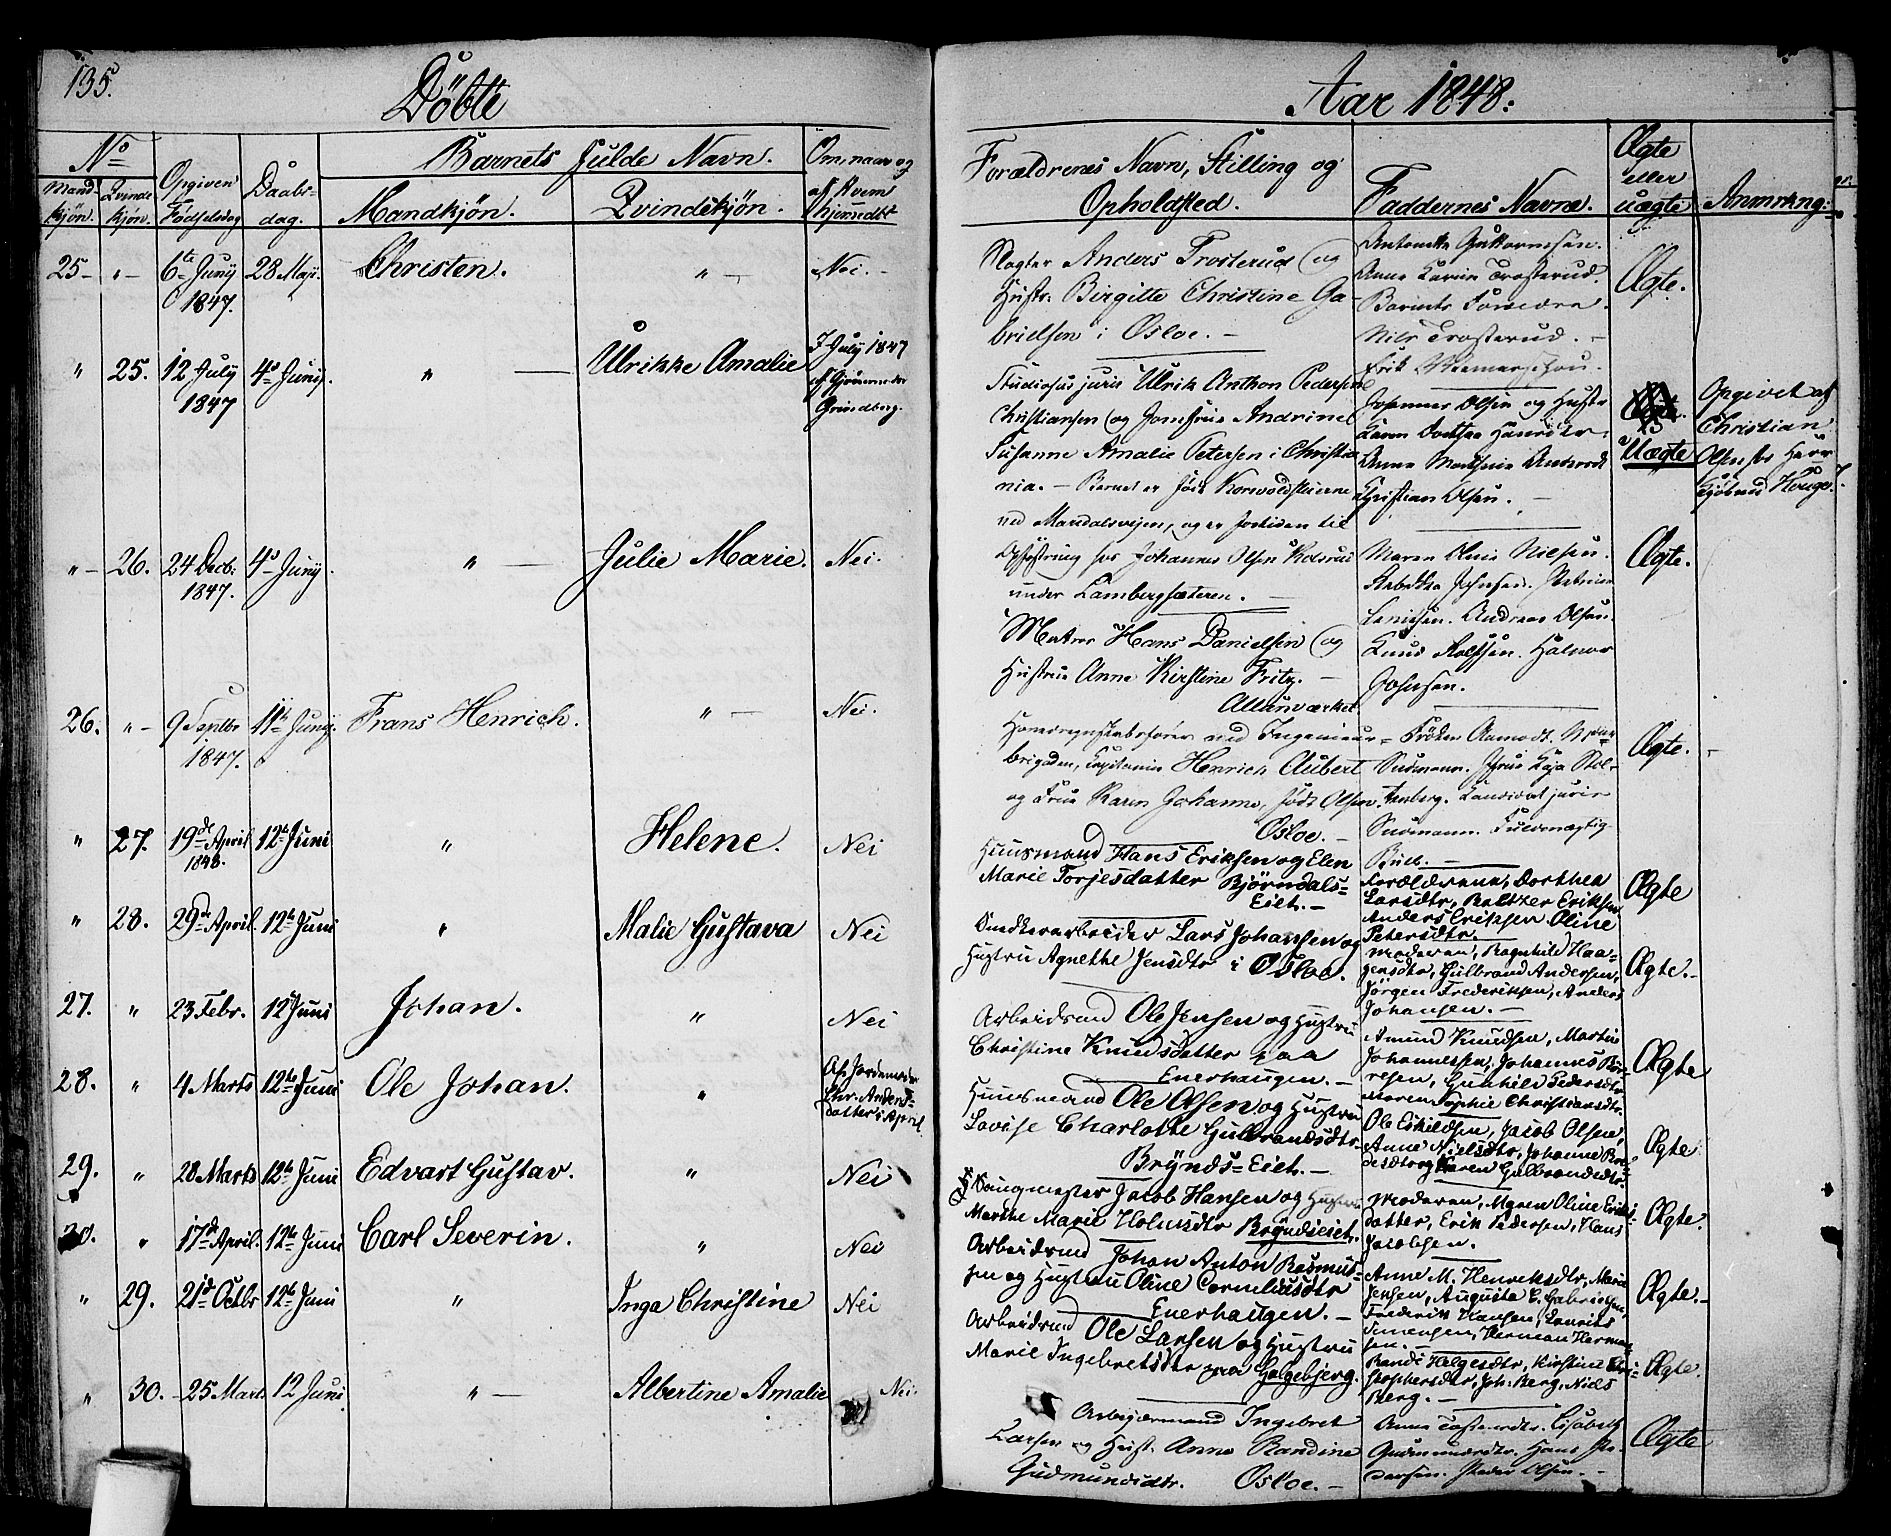 135.
Döbte
Aar 1848.
No
Mandkjön.
Qvindekjön.
Opgiven Fødselsdag
Daabsdag.
Barnets fulde Navn.
Mandkjön.
Qvindekjön.
Om, naar og af Hvem hjemmedøbt
Forældrenes Navn, Stilling og
Opholdsted.
Faddernes Navne.
Ægte
eller
uægte
Anmrkng:
25 - " - 6te Juny 1847. 28 Mai. Christen. " - Nei. -
Slagter Anders Trosterud og
Hustr. Birgitte Christine Ga-
brielsen i Osloe. -
Anne Karine Trosterud.
Nils Trosterud. -
Ægte.
" 25. 12 July 1847 4de Juny. " - Ulrikke Amalie
7 July 1847
af Gjordemoder
Grundberg.
Studiosus juris Ulrik Anthon Pedersen
Christiansen og Jomfrue Andrine
Susanne Amalie Petersen i Christia
nia. - Barnet er født
ved Mandalsveien, og er for tiden til
Opfostring hos Johannes Olsen
under Lambergsæteren. -
Johannes Olsen og Hustr
Christian Olsen. -
Uægte
Opgivet af
Christian
Olsen
" - 26. 24 Decb: 1847. 4de Juny. " - Julie Marie. Nei. -
Matros Hans Danielsen og
Hustrue Anne Kirstine Fritz. -
Allunværket
Maren Olava Nielsen.
Rebekka Johnsen.
Andreas Olsen.
Knud Rolfsen. Halvor
Johnsen.
Ægte.
26. " - 9 Septbr 1847. 11te Juny. Frans Henrich. " - Nei.
brigaden, Kapitain Henrich Aubert
og Frue Karen Johanne, født Olsen.
Osloe. -
Frøken Aamodt.
Sudmann. Frue Kaja Stol-
tenberg. Kandidat juris
Sudmann. Fuldmægtig
Bull. -
Ægte.
" 27. 19de April 1848. 12te Juni " Helene. Nei
Huusmand Hans Eriksen og Elen
Marie Torjesdatter Bjørndals=
Eiet. -
Forældrene, Dorthea
Larsdtr, Baltzer Eriksen
Anders Eriksen Oline
Petersdtr.
Ægte
" 28. 29de April. 12te Juni " Malie Gustava Nei
Snedkerarbeider Lars Johansen og
Hustru Agnethe Jensdtr i Osloe.
Moderen, Ragnhild Haa=
gensdtr, Gulbrand Andersen,
Jörgen Frederiksen, Anders
Johansen. -
Ægte. -
27. " 23 Febr. 12te Juni Johan. " Nei
Arbeidsmd Ole Jensen og Hustru
Christine Knudsdatter paa
Enerhaugen. -
Amund Knudsen, Martin
Johannessen, Johannes Bör-
resen, Gunhild Pedersdtr
Maren Sophie Christiansdtr.
Ægte
28. " 4 Marts 12te Juni Ole Johan. "
Af Jordemoder
Chr. Anders-
datter i April.
Huusmand Ole Olsen og Hustru
Lovise Charlotte Gulbrandsdtr
Brynds=Eiet. -
Ole Eskildsen, Jacob Olsen,
Anne Nielsdtr, Johanne
og Karen Gulbrandsdtr.
Ægte
29. " 28 Marts 12te Juni Edvart Gustav. " Nei
Saugmester Jacob Hansen og Hustru
Marthe Marie Holmsdtr Brÿndseiet.
Moderen, Maren Oline Eriks-
datter, Erik Pedersen, Hans
Jacobsen.
Ægte.
30. " 17de April. 12te Juni Carl Severin. " Nei
Arbeidsmd Johan Anton Rasmus-
sen og Hustru Oline Corneliusdtr
Enerhaugen. -
Anne M. Henriksdtr, Marie
Jensen, Augusta C. Gabrielsen,
Frederik Hansen, Laurits
Simensen, Herman Herman
sen. -
Ægte. -
" 29. 21de Octbr 12te Juni " Inga Christine Nei
Arbeidsmd Ole Larsen og Hustru
Marie Ingebretsdtr paa Galgebjerg.
Randi Helgesdtr, Kirstine Chri-
stophersdtr, Joh: Berg, Niels
Berg. -
Ægte.
" 30. - 25 Marts 12 Juni. " - Albertine Amalie Nei.
Arbeidsmand Ingebret
Larsen og Hust. Anne Randine
Gudmundsdtr. Osloe. -
Elisabeth
Gudmundsdtr. Hans Pe-
dersen. Peder Olsen. -
Ægte